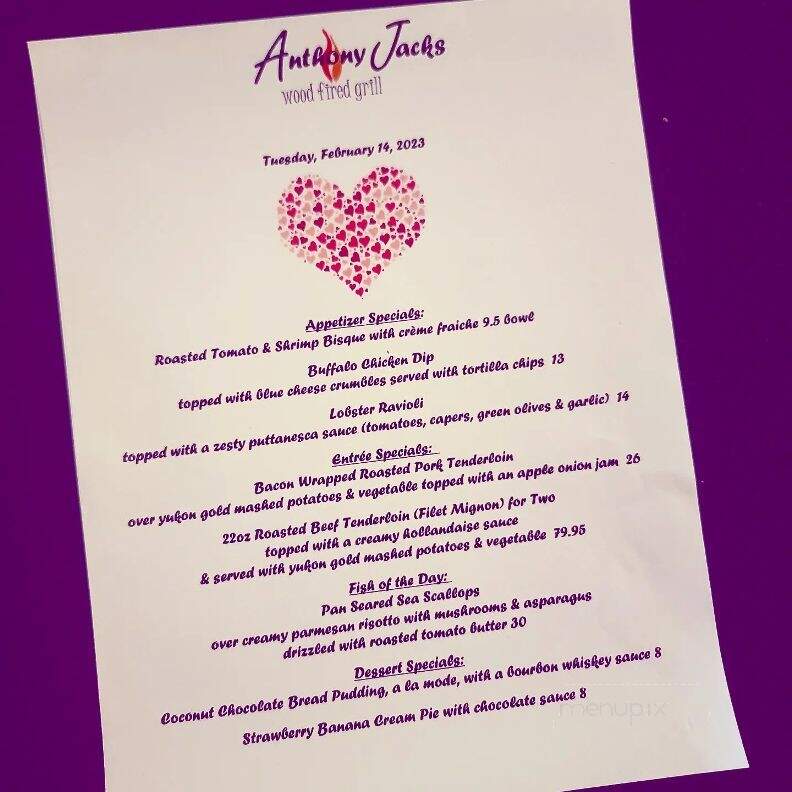 Anthony Jacks
wood fired grill
Tuesday, February 14, 2023
Appetizer Specials:
Roasted Tomato & Shrimp Bisque with crème fraiche 9.5 bowl
Buffalo Chicken Dip
topped with blue cheese crumbles served with tortilla chips 13
Lobster Ravioli
topped with a zesty puttanesca sauce (tomatoes, capers, green olives & garlic) 14
Entrée Specials:
Bacon Wrapped Roasted Pork Tenderloin
over yukon gold mashed potatoes & vegetable topped with an apple onion jam 26
22oz Roasted Beef Tenderloin (Filet Mignon) for Two
topped with a creamy hollandaise sauce
& served with yukon gold mashed potatoes & vegetable 79.95
Fish of the Day:
Pan Seared Sea Scallops
over creamy parmesan risotto with mushrooms & asparagus
drizzled with roasted tomato butter 30
Dessert Specials:
Coconut Chocolate Bread Pudding, a la mode, with a bourbon whiskey sauce 8
Strawberry Banana Cream Pie with chocolate sauce 8
menupix